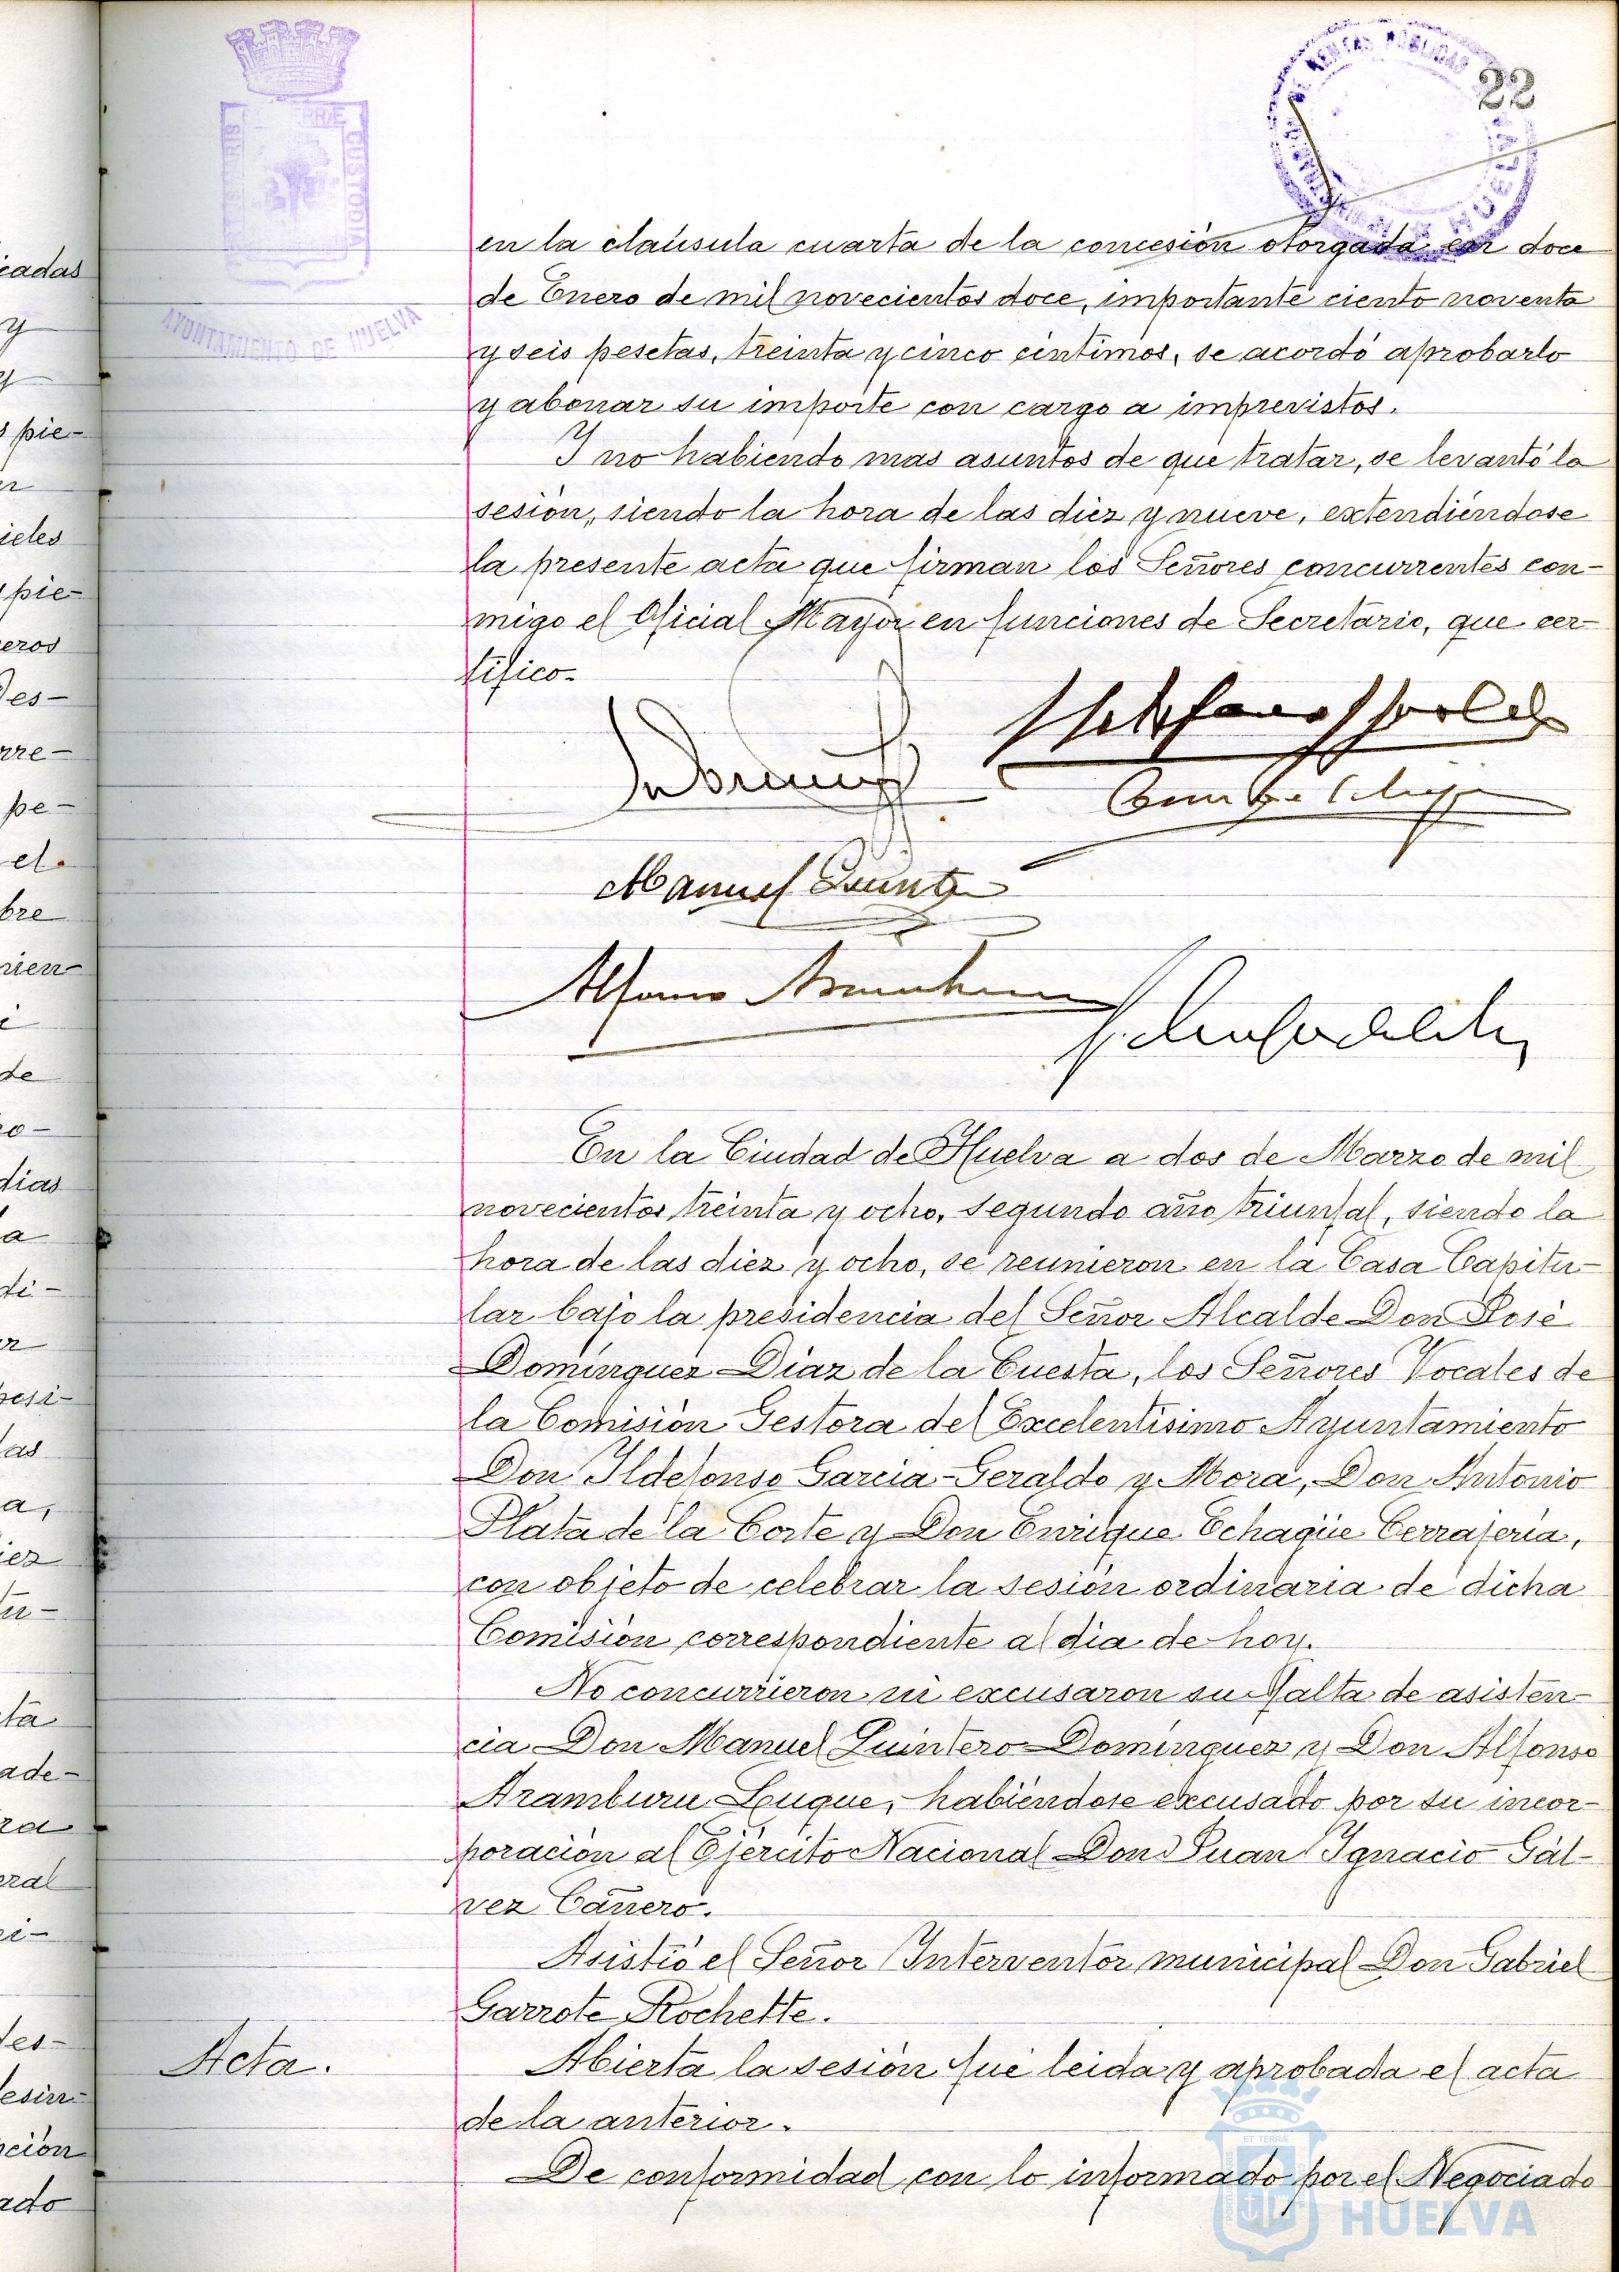 22
RENTAS PUBLICAS
HUELVA
TERRÆ CUSTODIA
AYUNTAMIENTO DE HUELVA
en la claúsula cuarta de la concesión otorgada en doce
de Enero de mil novecientos doce, importante ciento noventa
y seis pesetas, treinta y cinco céntimos, se acordó aprobarlo
y abonar su importe con cargo a imprevistos.
Y no habiendo mas asuntos de que tratar, se levantó la
sesión, siendo la hora de las diez y nueve, extendiéndose
la presente acta que firman los Señores concurrentes con-
migo el Oficial Mayor en funciones de Secretario, que cer-
tifico.
Manuel Quintero
Alfonso Aramburu
En la Ciudad de Huelva a dos de Marzo de mil
novecientos treinta y ocho, segundo año triunfal, siendo la
hora de las diez y ocho, se reunieron en la Casa Capitu-
lar bajo la presidencia del Señor Alcalde Don José
Domínguez Díaz de la Cuesta, los Señores Vocales de
la Comisión Gestora del Excelentísimo Ayuntamiento
Don Ildefonso García-Geraldo y Mora, Don Antonio
Plata de la Corte y Don Enrique Echagüe Cerrajería,
con objeto de celebrar la sesión ordinaria de dicha
Comisión correspondiente al dia de hoy.
No concurrieron ni excusaron su falta de asisten-
cia Don Manuel Quintero Domínguez y Don Alfonso
Aramburu Luque, habiéndose excusado por su incor-
poración al Ejército Nacional Don Juan Ignacio Gál-
vez Cañero.
Asistió el Señor Interventor municipal Don Gabriel
Garrote Rochette.
Acta.
Abierta la sesión fué leida y aprobada el acta
de la anterior.
De conformidad con lo informado por el Negociado
HUELVA
icadas
y
y
s pie-
ieles
pie-
eros
Des-
rre-
pe-
el
bre
rien-
de
dias
a
di-
posi-
las
a,
iez
tu-
ta
ade-
ra
eral
des-
lesin-
pción
ado